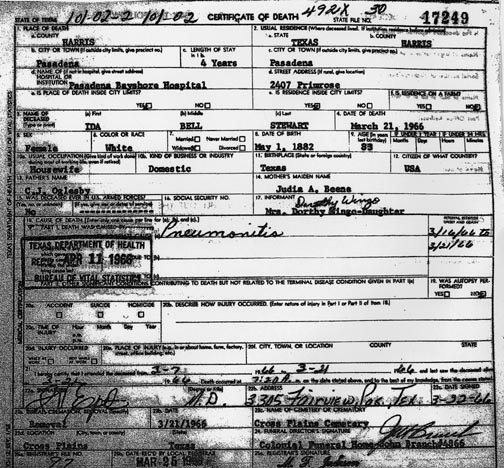 STATE OF TEXAS 10/-02-2 10/-02 CERTIFICATE OF DEATH 492X 30 STATE FILE NO. 17249
1. PLACE OF DEATH
a. COUNTY HARRIS
2. USUAL RESIDENCE (Where deceased lived. If institution: residence before admission)
a. STATE TEXAS b. COUNTY HARRIS
b. CITY OR TOWN (If outside city limits, give precinct no.) Pasadena
c. LENGTH OF STAY 4 Years
c. CITY OR TOWN (If outside city limits, give precinct no.) Pasadena
d. NAME OF (If not in hospital, give street address) HOSPITAL OR INSTITUTION Pasadena Bayshore Hospital
d. STREET ADDRESS (If rural, give location) 2407 Primrose
e. IS PLACE OF DEATH INSIDE CITY LIMITS? YES NO
e. IS RESIDENCE INSIDE CITY LIMITS? YES NO
f. IS RESIDENCE ON A FARM? YES NO
3. NAME OF DECEASED (Type or print)
(a) First IDA
(b) Middle BELL
(c) Last STEWART
4. DATE OF DEATH March 21, 1966
5. SEX Female
6. COLOR OR RACE White
7. Married Never Married Widowed Divorced
8. DATE OF BIRTH May 1, 1882
9. AGE 83
10a. USUAL OCCUPATION Housewife
10b. KIND OF BUSINESS OR INDUSTRY Domestic
11. BIRTHPLACE (State or foreign country) Texas
12. CITIZEN OF WHAT COUNTRY? USA
13. FATHER'S NAME C.J. Oglesby
14. MOTHER'S MAIDEN NAME Judia A. Beene
15. WAS DECEASED EVER IN U.S. ARMED FORCES? No
16. SOCIAL SECURITY NO.
17. INFORMANT Dorothy Wingo
Mrs. Dorthy Wingo-Daughter
18. CAUSE OF DEATH
PART I. DEATH WAS CAUSED BY: Pneumonitis
INTERVAL BETWEEN ONSET AND DEATH
3/16/66 to 3/21/66
TEXAS DEPARTMENT OF HEALTH
APR 11 1966
BUREAU OF VITAL STATISTICS
CONTRIBUTING TO DEATH BUT NOT RELATED TO THE TERMINAL DISEASE CONDITION GIVEN IN PART I(a)
19. WAS AUTOPSY PERFORMED? YES NO
20a. ACCIDENT SUICIDE HOMICIDE
20b. DESCRIBE HOW INJURY OCCURRED. (Enter nature of injury in Part I or Part II of Item 18.)
20c. TIME OF INJURY Hour Month Day Year
20d. INJURY OCCURRED
20e. PLACE OF INJURY (e.g., in or about home, farm, factory, street, office building, etc.)
20f. CITY, TOWN, OR LOCATION COUNTY STATE
M.D.
22b. ADDRESS 3305 Fairview Pas, Tex
22c. DATE SIGNED 3-22-66
Removal
23b. DATE 3/21/1966
23c. NAME OF CEMETERY OR CREMATORY Cross Plains Cemetery
Cross Plains Texas
24. FUNERAL DIRECTOR'S SIGNATURE
Colonial Funeral Home-John Branch#4866
MAR 25